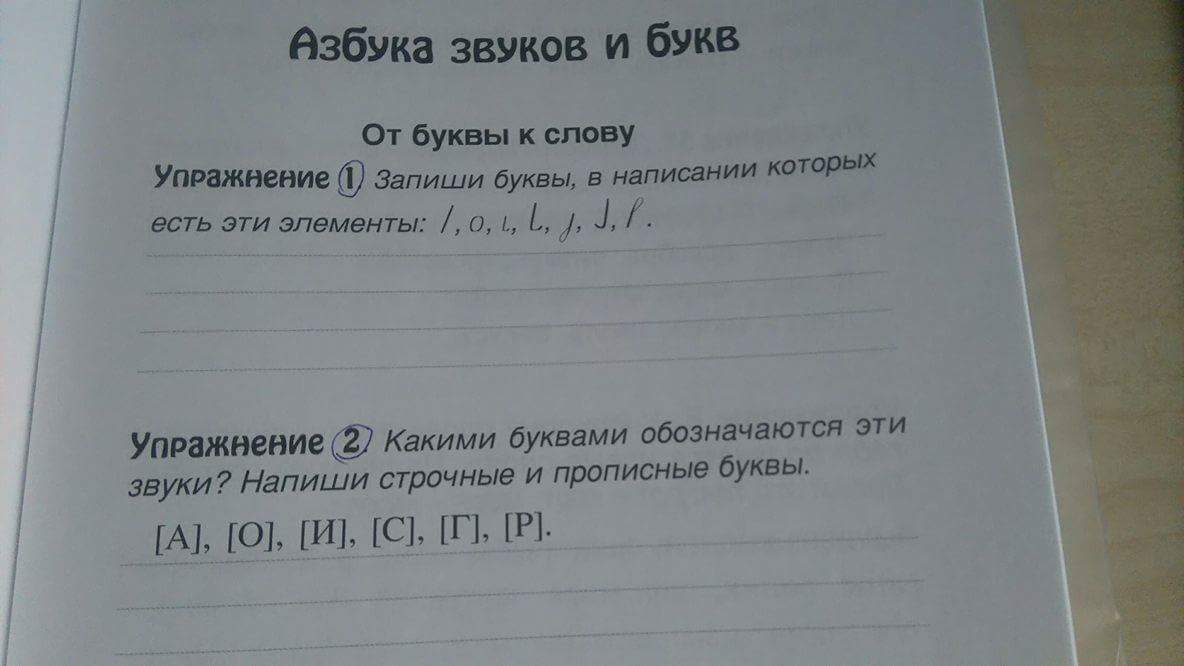 Азбука звуков и букв
От буквы к слову
Упражнение 1 Запиши буквы, в написании которых
есть эти элементы: /, о, ι, L, j, J, ℓ.
Упражнение 2. Какими буквами обозначаются эти
звуки? Напиши строчные и прописные буквы.
[А], [О], [И], [С], [Г], [Р].